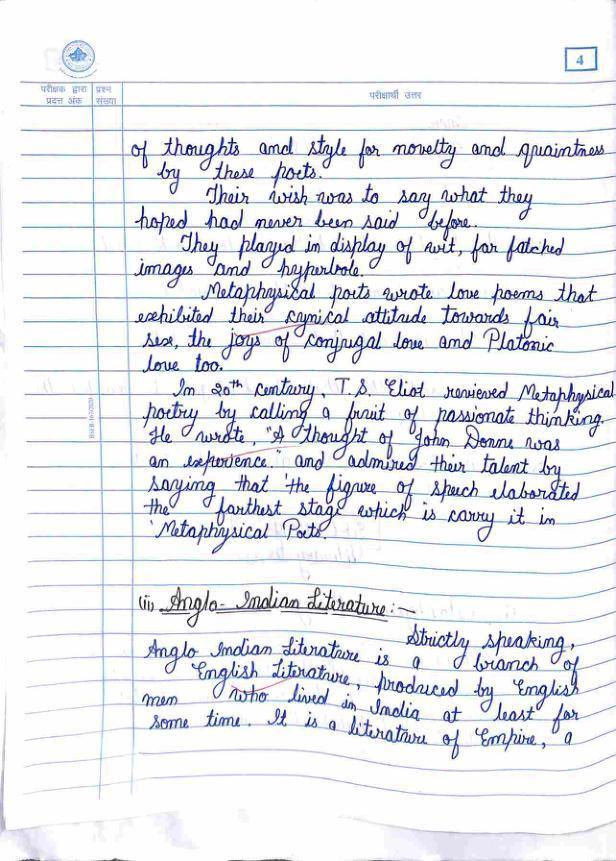 4
परीक्षक द्वारा प्रश्न परीक्षार्थी उत्तर
प्रदत्त अंक संख्या
of thoughts and style for novelty and quaintness
by these poets.
Their wish was to say what they
hoped had never been said before.
They played in display of wit, far fatched
images and hyperbole.
Metaphysical poets wrote love poems that
exhibited their cynical attitude towards fair
sex, the joys of conjugal love and Platonic
love too.
In 20th century, T.S. Eliot reviewed Metaphysical
poetry by calling a fruit of passionate thinking.
He wrote, "A thought of John Donne was
an experience." and admired their talent by
saying that 'the figure of speech elaborated
the farthest stage which is carry it in
'Metaphysical Poets.'
(ii) Anglo-Indian Literature:-
Strictly speaking,
Anglo Indian Literature is a branch of
English Literature, produced by English
men who lived in India at least for
some time. It is a literature of Empire, a